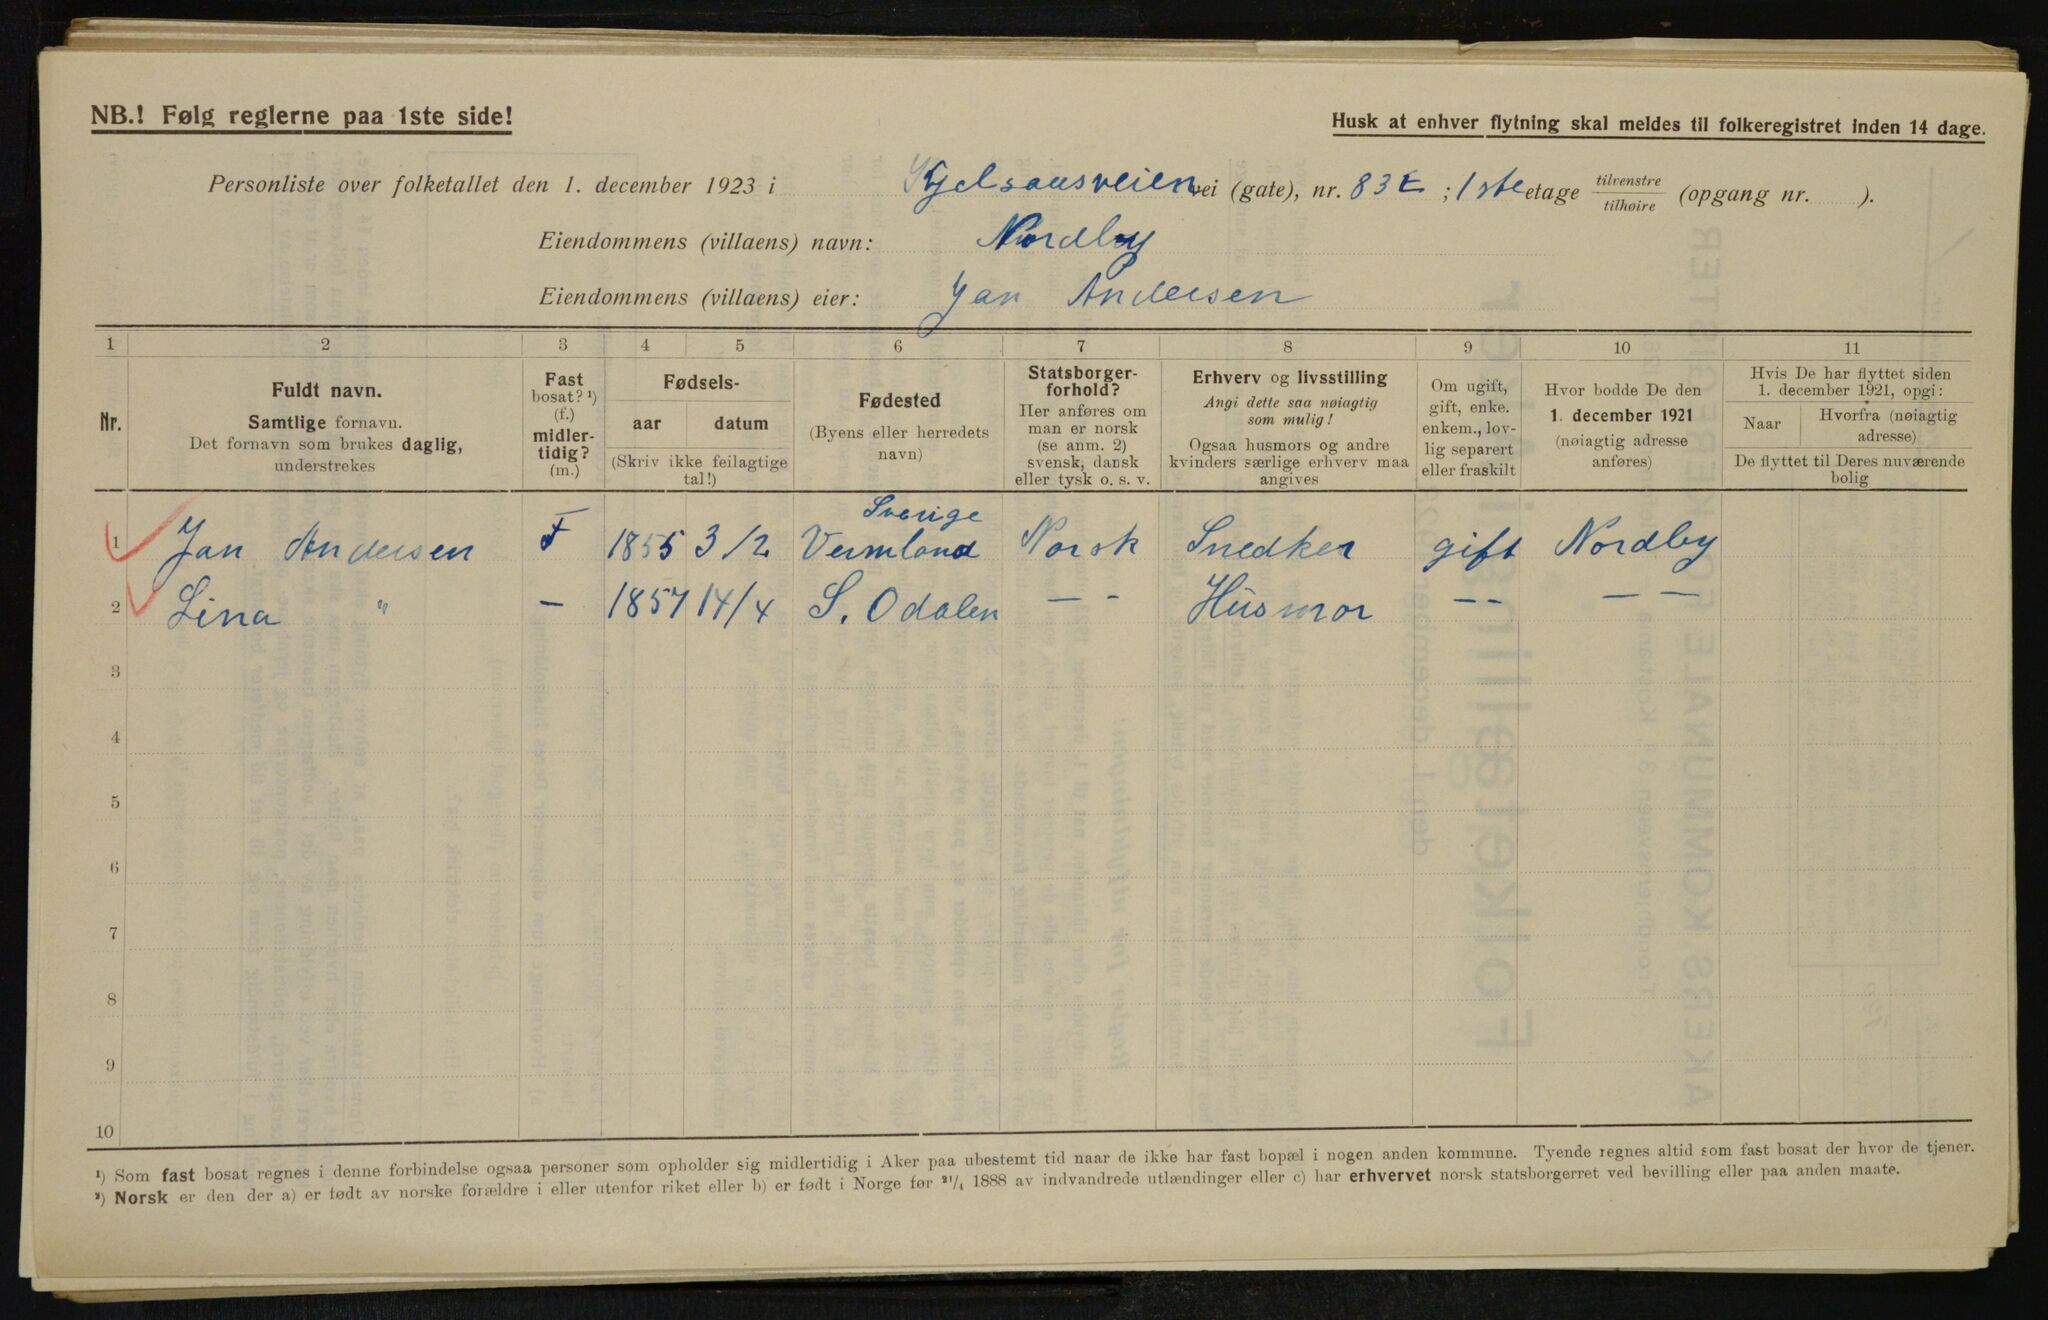 NB.! Følg reglerne paa 1ste side!
Husk at enhver flytning skal meldes til folkeregistret inden 14 dage.
Personliste over folketallet den 1. december 1923 i Kjelsaasveien vei (gate), nr. 83 E ; 1ste etage tilvenstre / tilhøire (opgang nr. ).
Eiendommens (villaens) navn: Nordby
Eiendommens (villaens) eier: Jan Andersen
1 2 3 4 5 6 7 8 9 10 11
Nr.
Fuldt navn.
Samtlige fornavn.
Det fornavn som brukes daglig,
understrekes
Fast
bosat? ¹)
(f.)
midler-
tidig?
(m.)
Fødsels-
aar datum
(Skriv ikke feilagtige
tal!)
Fødested
(Byens eller herredets
navn)
Statsborger-
forhold?
Her anføres om
man er norsk
(se anm. 2)
svensk, dansk
eller tysk o. s. v.
Erhverv og livsstilling
Angi dette saa nøiagtig
som mulig!
Ogsaa husmors og andre
kvinders særlige erhverv maa
angives
Om ugift,
gift, enke.
enkem., lov-
lig separert
eller fraskilt
Hvor bodde De den
1. december 1921
(nøiagtig adresse
anføres)
Hvis De har flyttet siden
1. december 1921, opgi:
Naar Hvorfra (nøiagtig
adresse)
De flyttet til Deres nuværende
bolig
Sverige
1 Jan Andersen F 1855 3/2 Vermland Norsk Snedker gift Nordby
2 Lina " – 1857 14/4 S. Odalen – - Husmor – - – –
3
4
5
6
7
8
9
10
¹) Som fast bosat regnes i denne forbindelse ogsaa personer som opholder sig midlertidig i Aker paa ubestemt tid naar de ikke har fast bopæl i nogen anden kommune. Tyende regnes altid som fast bosat der hvor de tjener.
²) Norsk er den der a) er født av norske forældre i eller utenfor riket eller b) er født i Norge før 21/4 1888 av indvandrede utlændinger eller c) har erhvervet norsk statsborgerret ved bevilling eller paa anden maate.